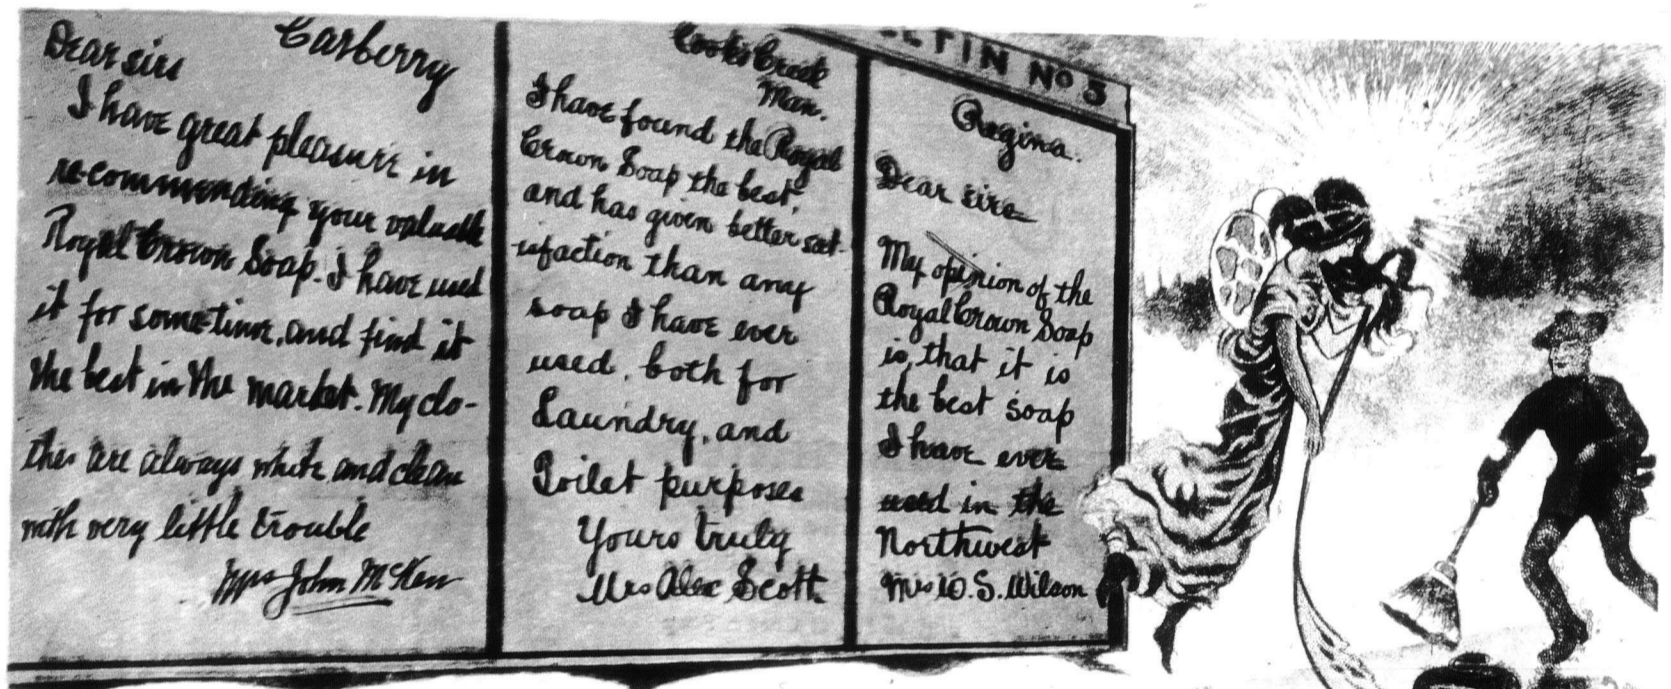 Carberry
Dear sirs
I have great pleasure in
recommending your valuable
Royal Crown Soap. I have used
it for sometime, and find it
the best in the market. My clo-
thes are always white and clean
with very little trouble
Mrs John McKen
Cooks Creek
Man.
I have found the Royal
Crown Soap the best,
and has given better sat-
isfaction than any
soap I have ever
used, both for
Laundry, and
Toilet purposes
Yours truly
Mrs Alex Scott
LETIN No 5
Regina.
Dear sirs
My opinion of the
Royal Crown Soap
is, that it is
the best soap
I have ever
used in the
Northwest
Mrs W. S. Wilson